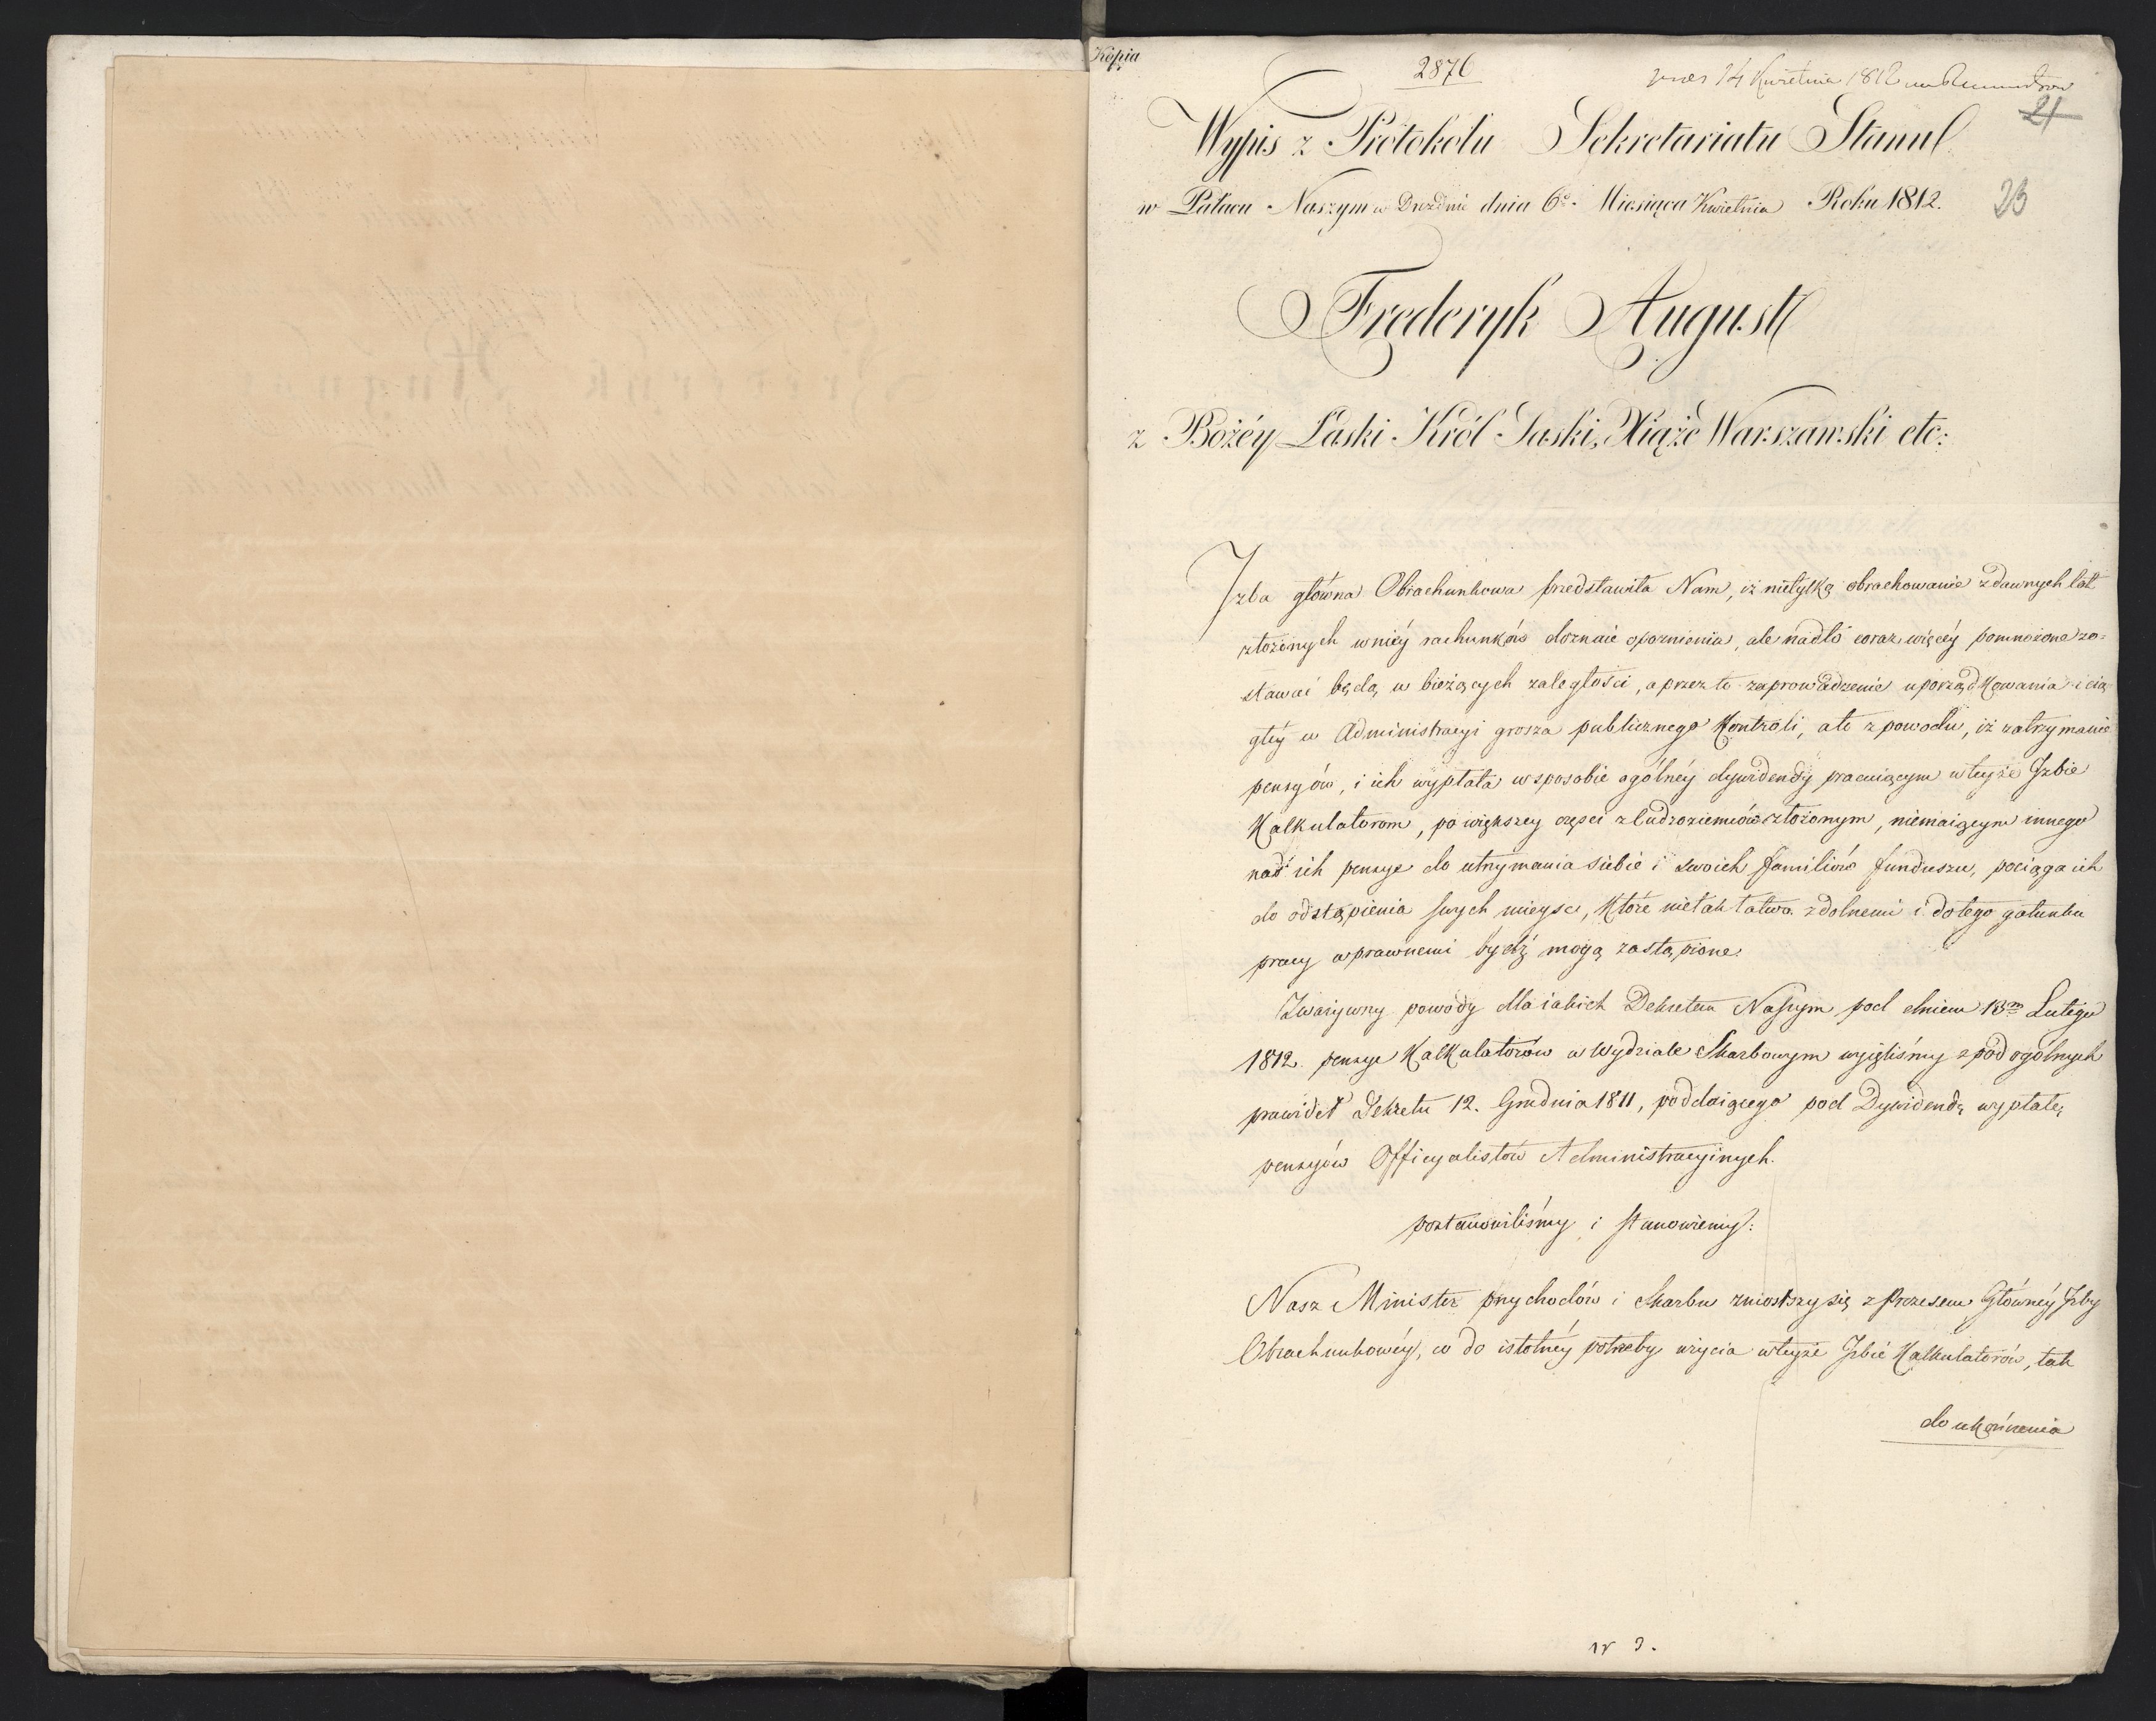 Kopia
2876
14 Kwietnia 1812
21
Wypis z Protokolu Sekretariatu Stanu
w Pałacu Naszym w Dreznie dnia 6o. Miesiąca Kwietnia Roku 1812.
23
Frederyk August
z Bożéy Łaski Król Saski, Xiąże Warszawski etc:
Izba główna Obrachunkowa przedstawiła Nam, iż nietylko obrachowanie zdawnych lat
złożonych wniéy rachunków doznaie opoznienia, ale nadto coraz więcéy pomnożone zo-
stawać będą w bieżących zaległości, a przez to zaprowadzenie uporządkowania i cią-
głéy w Administracyi grosza publicznego Kontroli, ale z powodu, iż zatrzymanie
pensyów, i ich wypłata w sposobie ogólnéy dywidendy pracuiącym w teyże Izbie
Kalkulatorom, po większey części z Cudzoziemców złożonym, niemaiącym innego
nad ich pensye do utrzymania siebie i swoich familiów funduszu, pociąga ich
do odstąpienia swych mieysc, Które nietak łatwo zdolnemi i do tego gatunku
pracy wprawnemi bydź mogą zastąpione.
Zważywszy powody dla iakich Dekretem Naszym pod dniem 13m Lutego
1812. pensye Kalkulatorów w Wydziale Skarbowym wyięliśmy z pod ogólnych
prawideł Dekretu 12. Grudnia 1811, poddaiącego pod Dywidendę wypłatę
pensyów Officyalistów Administracyinych.
postanowiliśmy i stanowiemy:
Nasz Minister przychodów i Skarbu zniosłszy się z Prezesem Głównéy Izby
Obrachunkowéy, co do istotnéy potrzeby użycia w teyże Izbie Kalkulatorów, tak
do ukończenia